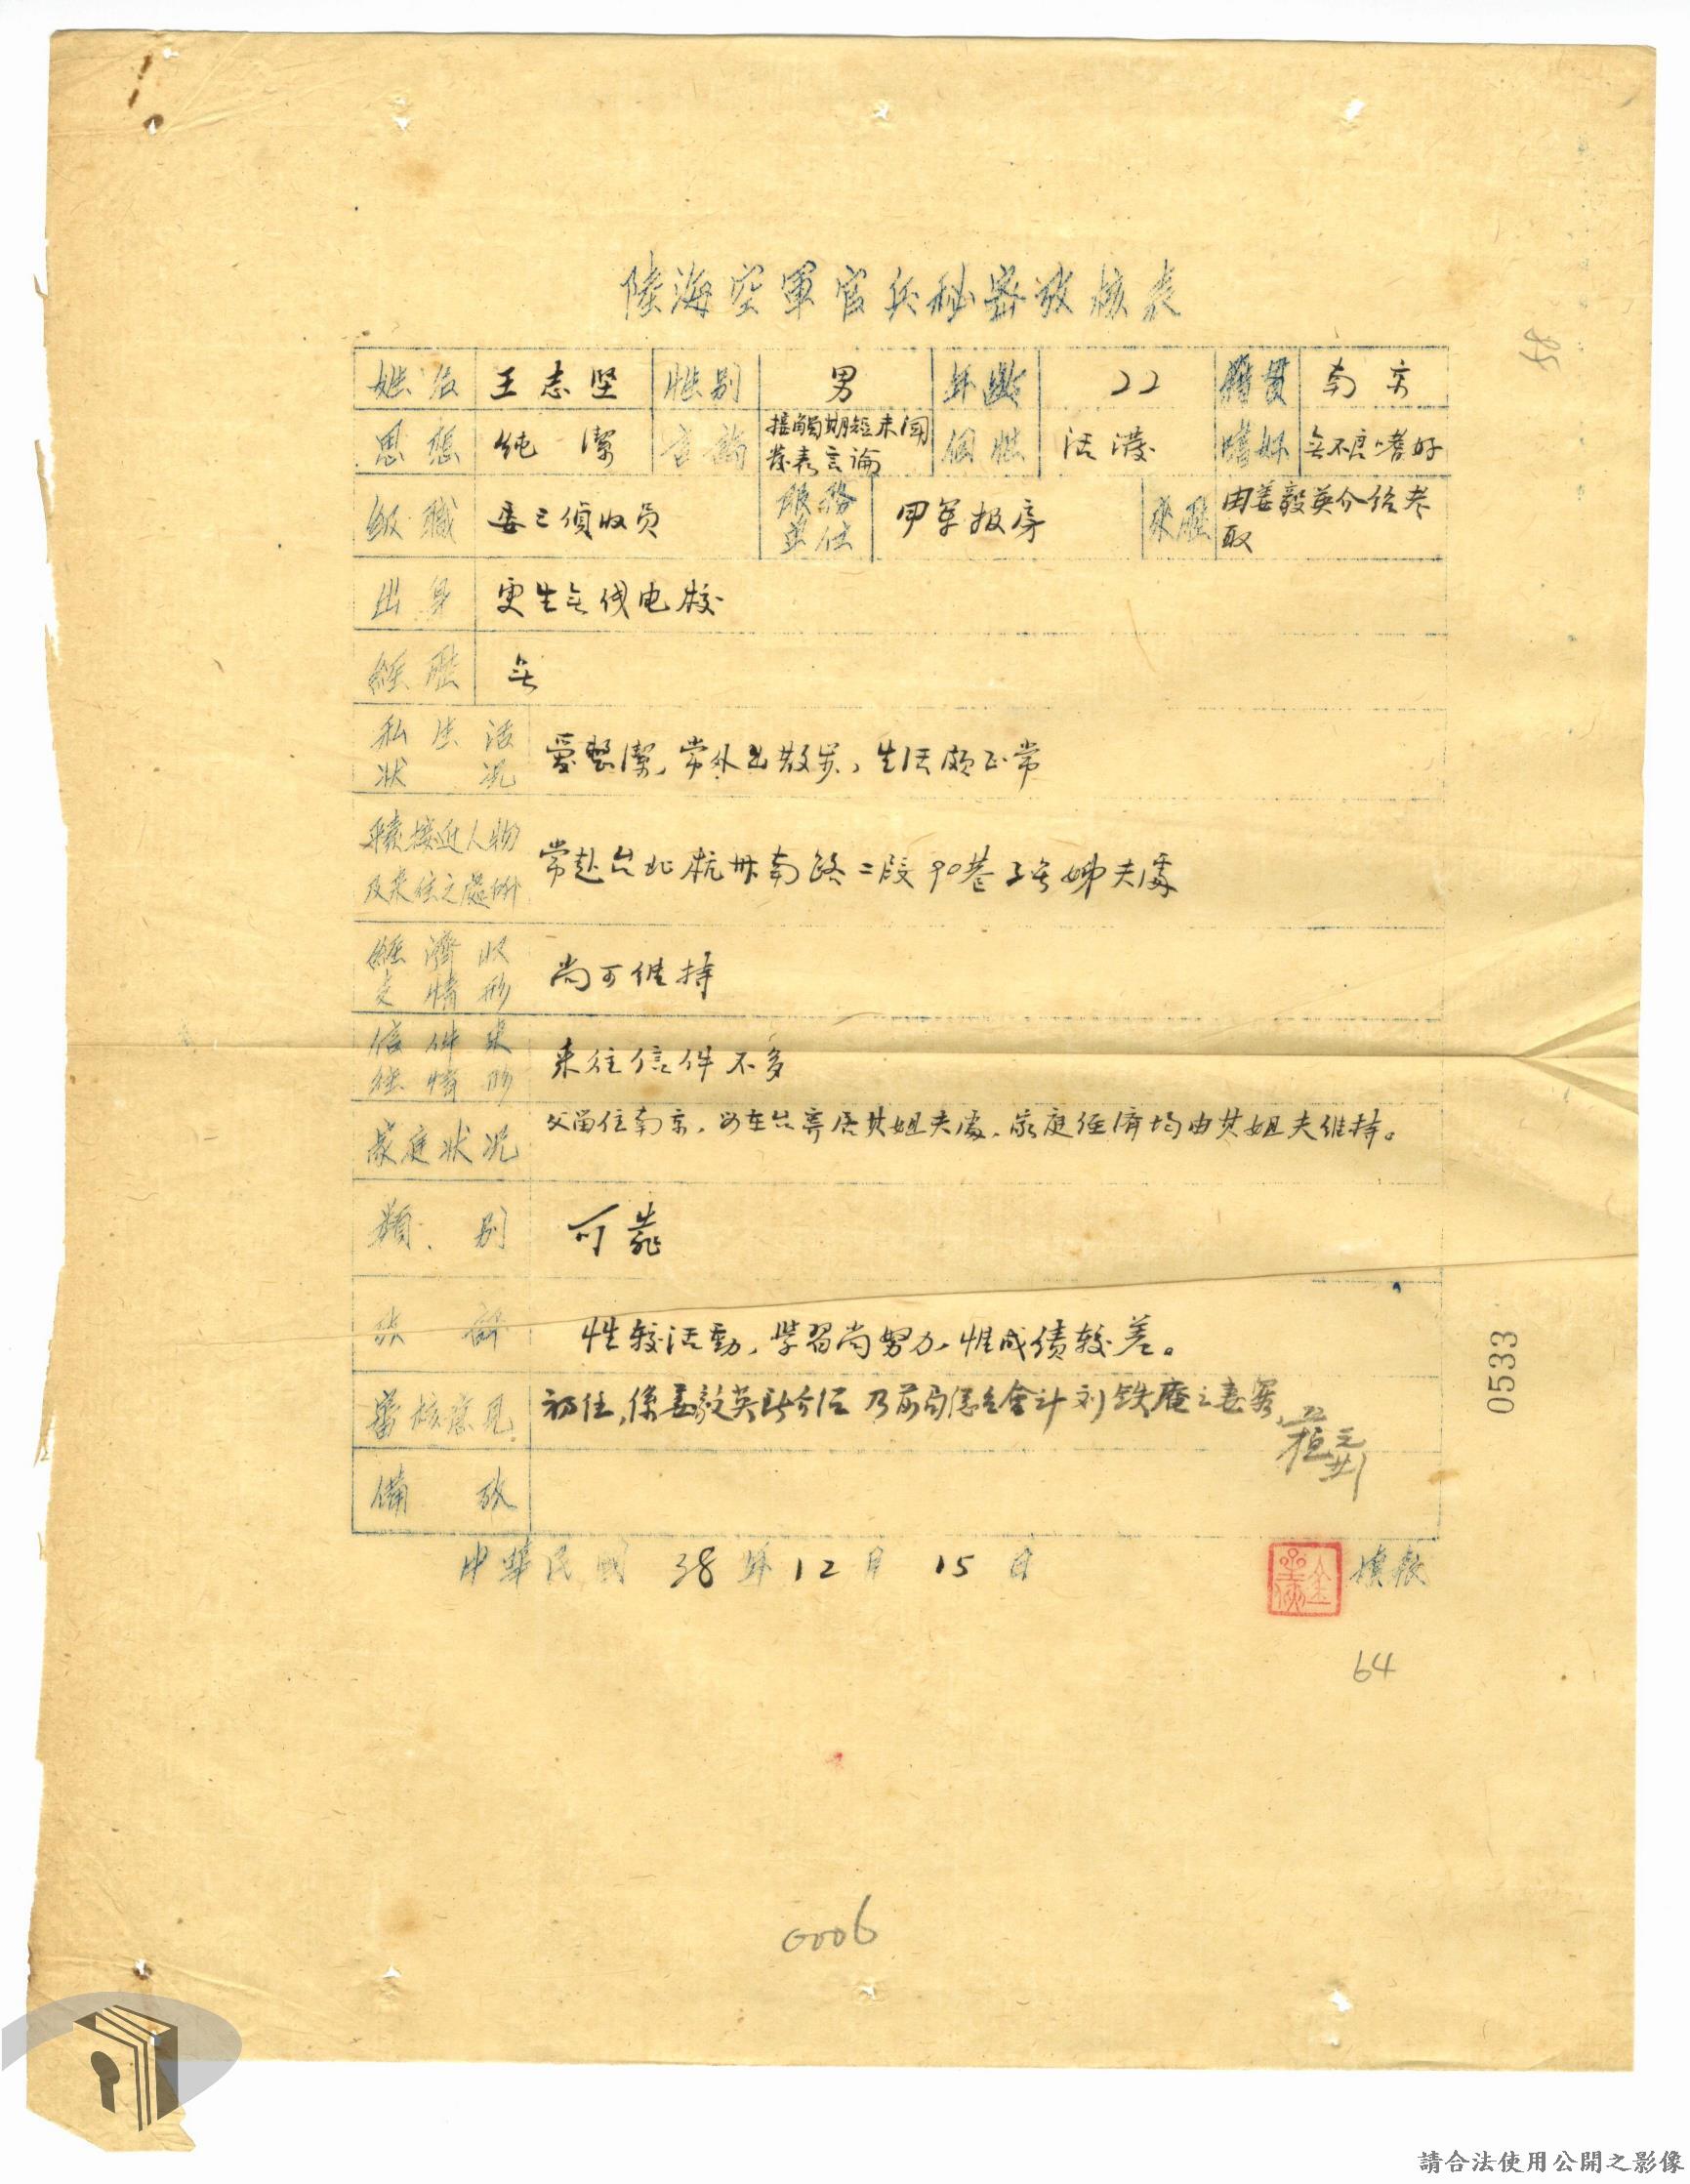 陸海空軍官兵秘密攷核表
85
姓名 王志坚 性别 男 年齡 22 籍貫 南京
思想 純潔 言論 接觸期短未聞
发表言論 個性 活潑 嗜好 无不良嗜好
級職 委三偵收员 服務
單位 甲军报房 來歷 由姜毅英介绍考
取
出身 更生无线电校
經歷 无
私生活
狀況 爱整潔,常外出散步,生活颇正常
平素接近人物
及來往之處所 常赴台北杭州南路二段90巷3号姊夫處
經濟收
支情形 尚可维持
信件來
往情形 来往信件不多
家庭狀况 父留住南京,母在台寄居其姐夫處,家庭经济均由其姐夫维持。
類别 可靠
性较活動,学習尚努力,惟成绩较差。
審核意見 初任,係姜毅英所介绍 乃前局 會计刘铁庵之妻
備攷
中華民國 38年12月15日
填報
64
0533
0006
請合法使用公開之影像